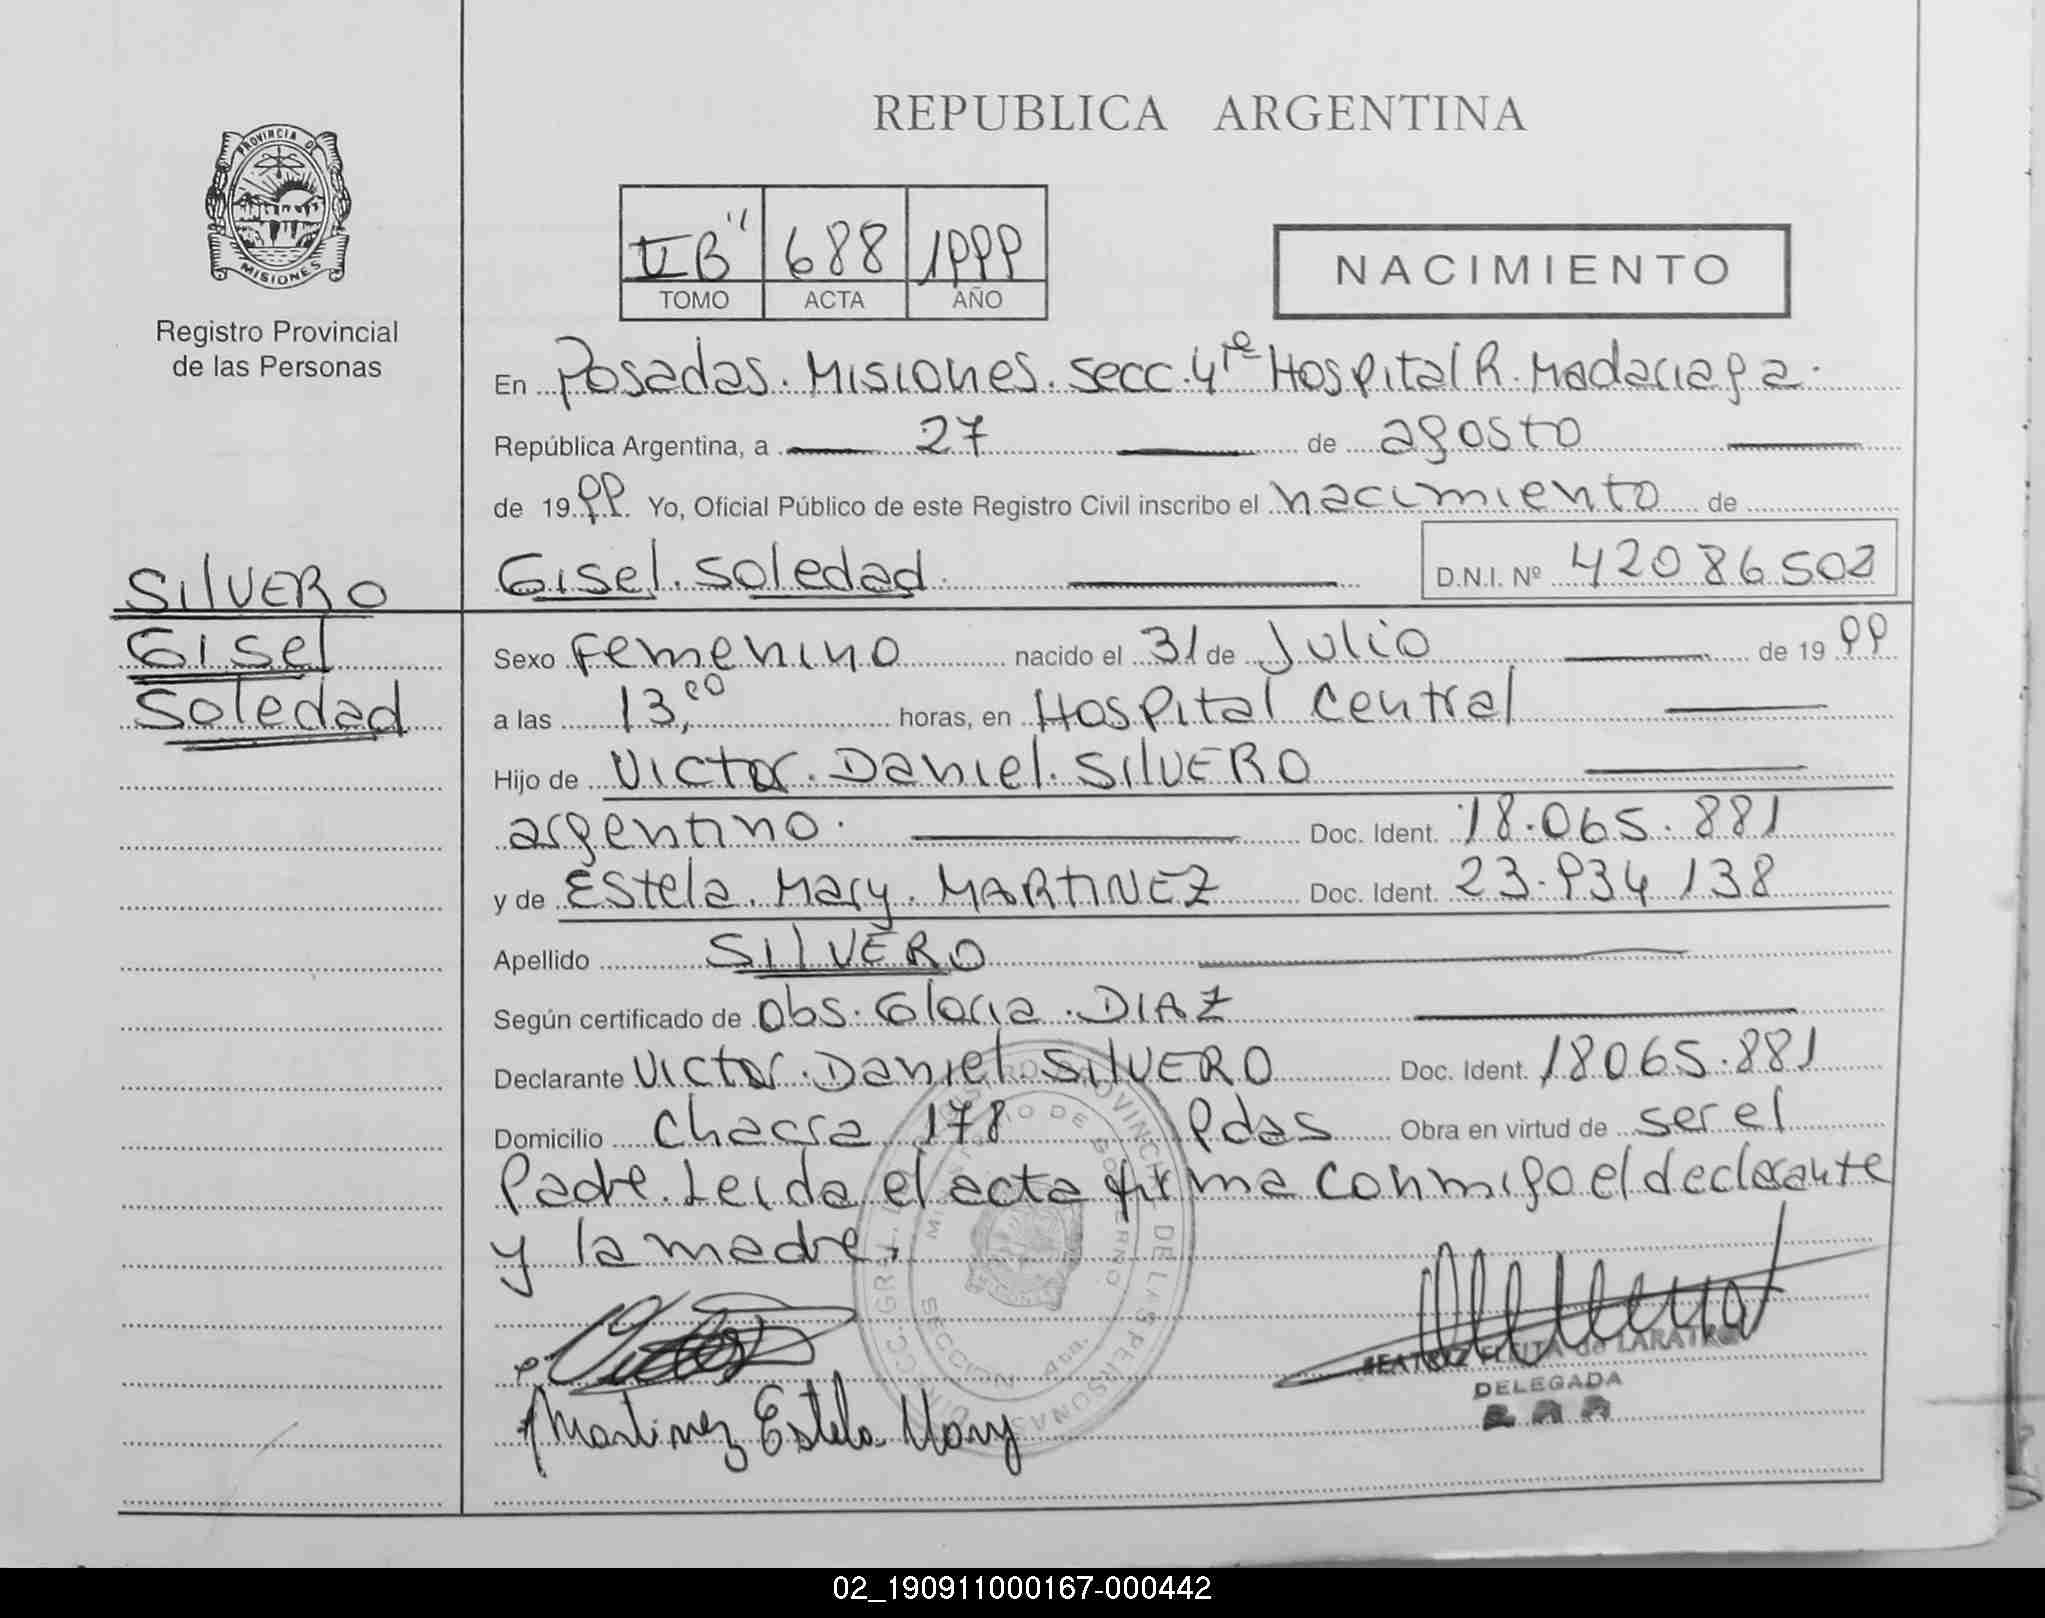 REPUBLICA ARGENTINA
PROVINCIA DE
MISIONES
Registro Provincial
de las Personas
II B" 688 1999
TOMO ACTA AÑO
NACIMIENTO
En Posadas. Misiones. secc. 4ta Hospital R. Madariaga.
República Argentina, a 27 de agosto
de 1999 Yo, Oficial Público de este Registro Civil inscribo el nacimiento de
Gisel. Soledad. D.N.I. Nº
SILVERO
Gisel
Soledad
Sexo Femenino nacido el 31 de Julio de 1999
a las 13,00 horas, en Hospital Central
Hijo de Victor. Daniel. SILVERO
argentino. Doc. Ident. 18.065.881
y de Estela. Mary. MARTINEZ Doc. Ident. 23.934 138
Apellido SILVERO
Según certificado de Obs. Gloria. DIAZ
Declarante Victor. Daniel. SILVERO Doc. Ident. 18065.881
Domicilio Chacra 178 Pdas Obra en virtud de ser el
Padre. Leida el acta firma conmigo el declarante
y la madre.
MINISTERIO DE GOBIERNO
DE LAS PERSONAS
SECCION 4ta.
Martinez Estela Mary
BEATRIZ de
DELEGADA
02_190911000167-000442